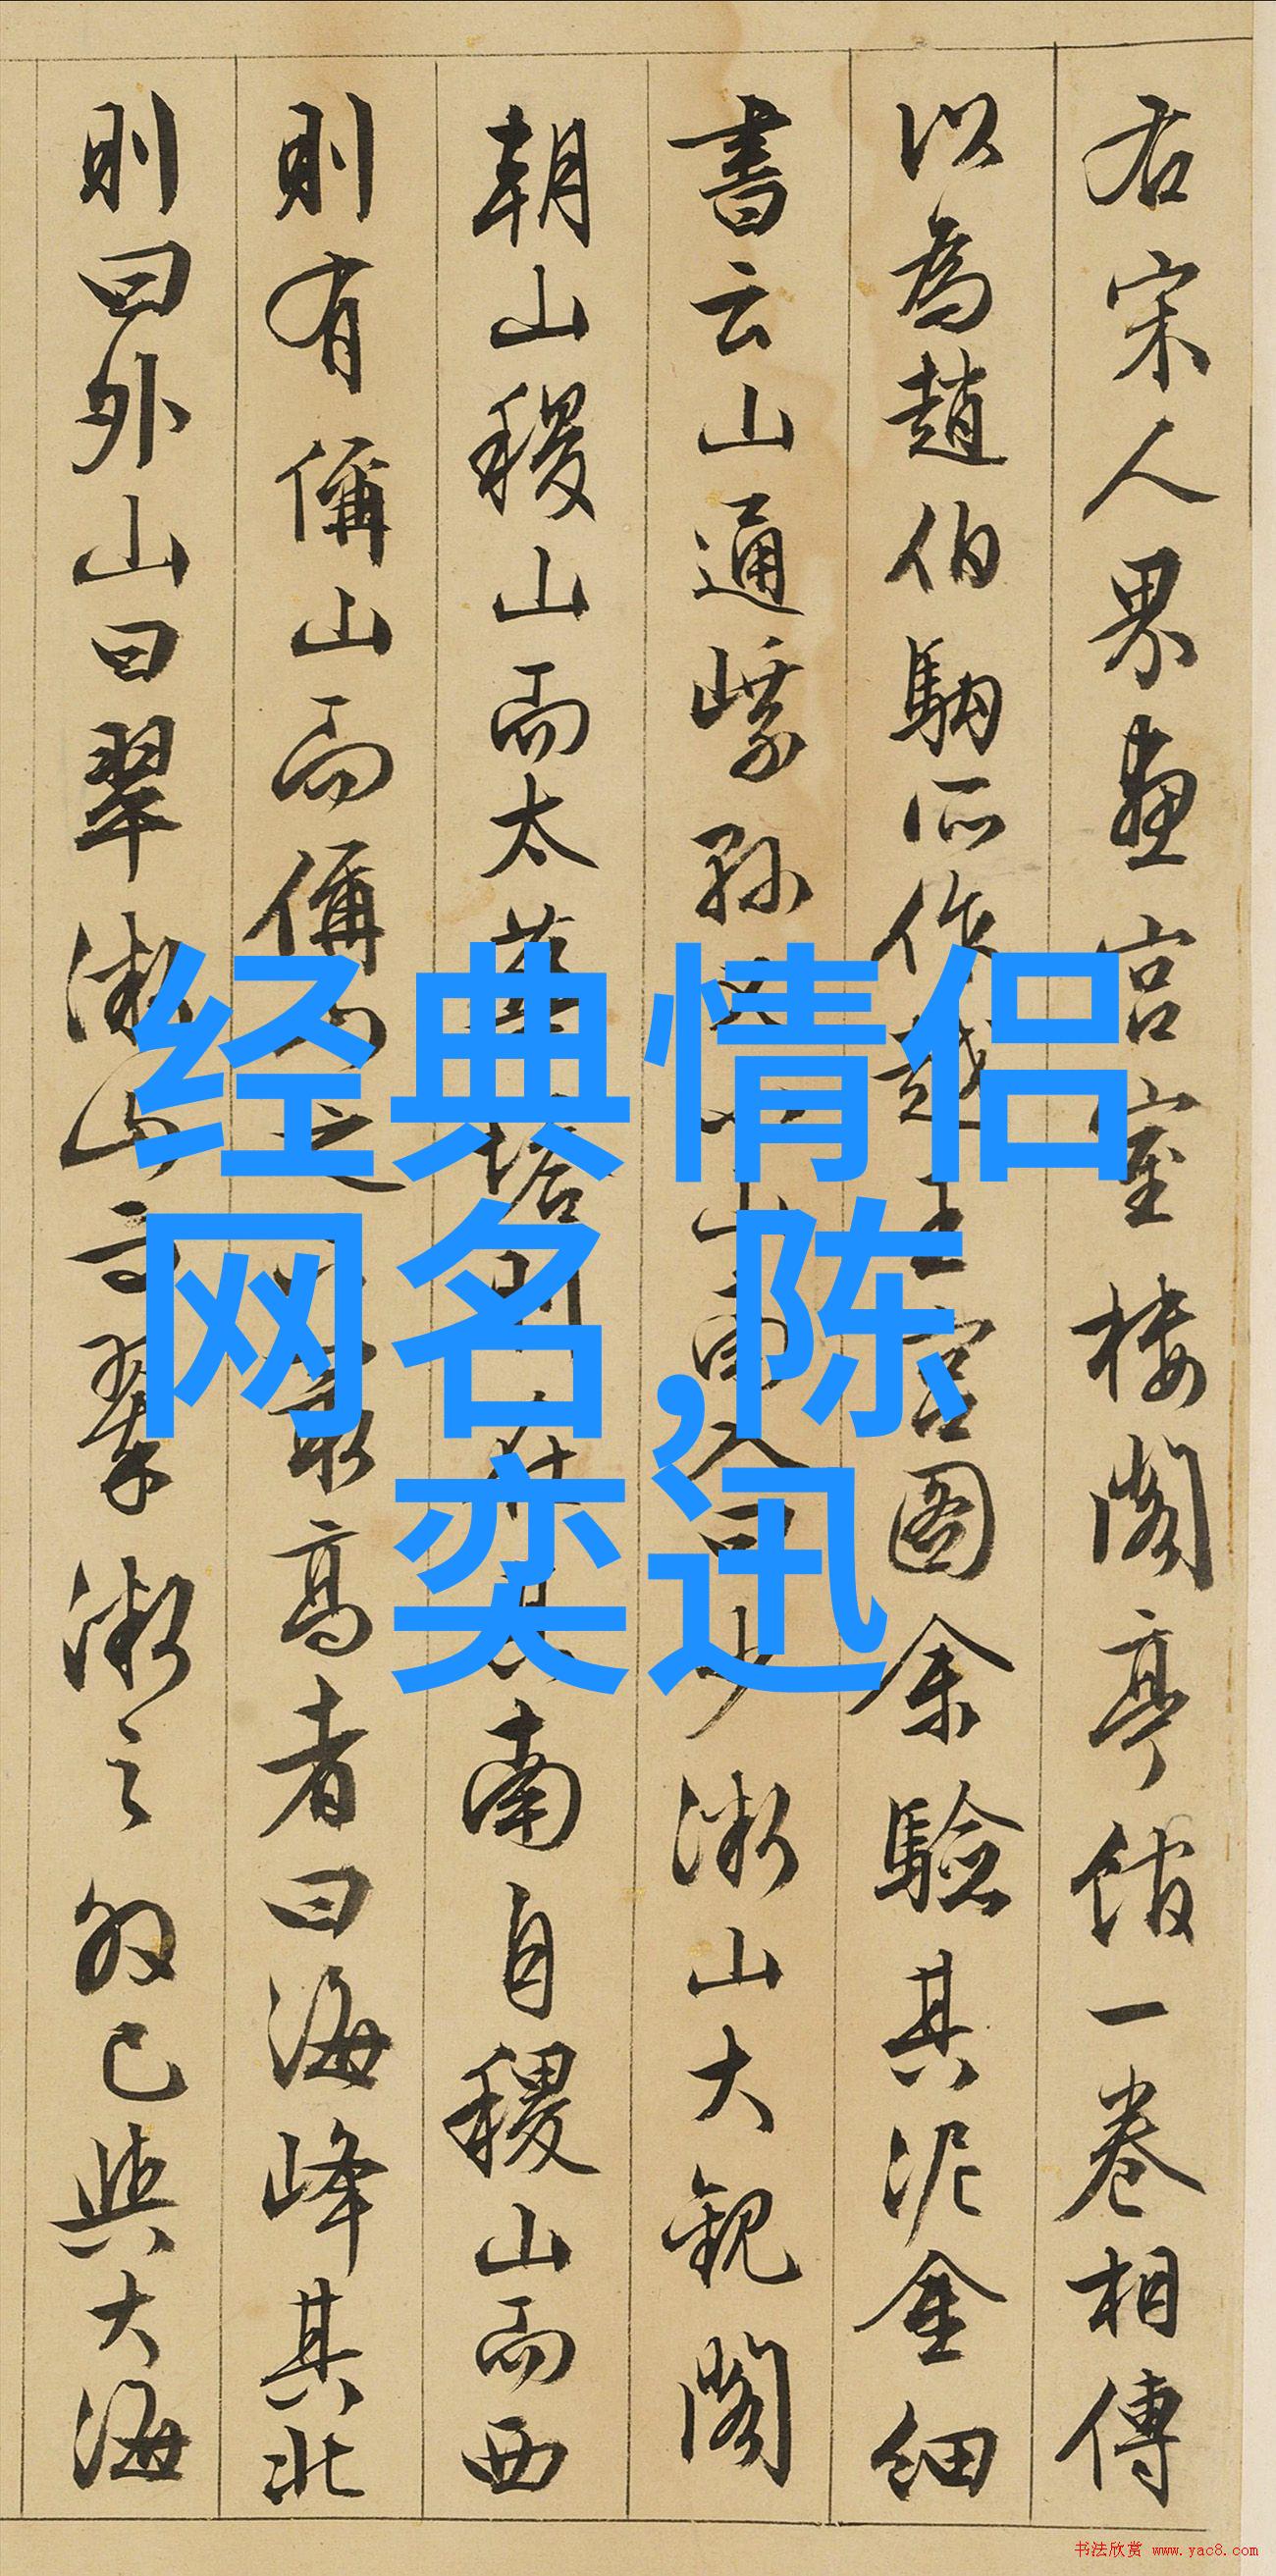 右宋人界畫宮室樓閣亭館一卷相傳
以為趙伯駒所作越王宮圖余驗其泥金細
書云山通 南入 少微山大觀閣
朝山稷山而太 南自稷山而西
則有偁山而偁 最高者曰海峰其北
則曰外山曰翠微山 翠微之 已與大海
经典情侣
网名,陈
奕迅
书法欣赏 www.yac8.com